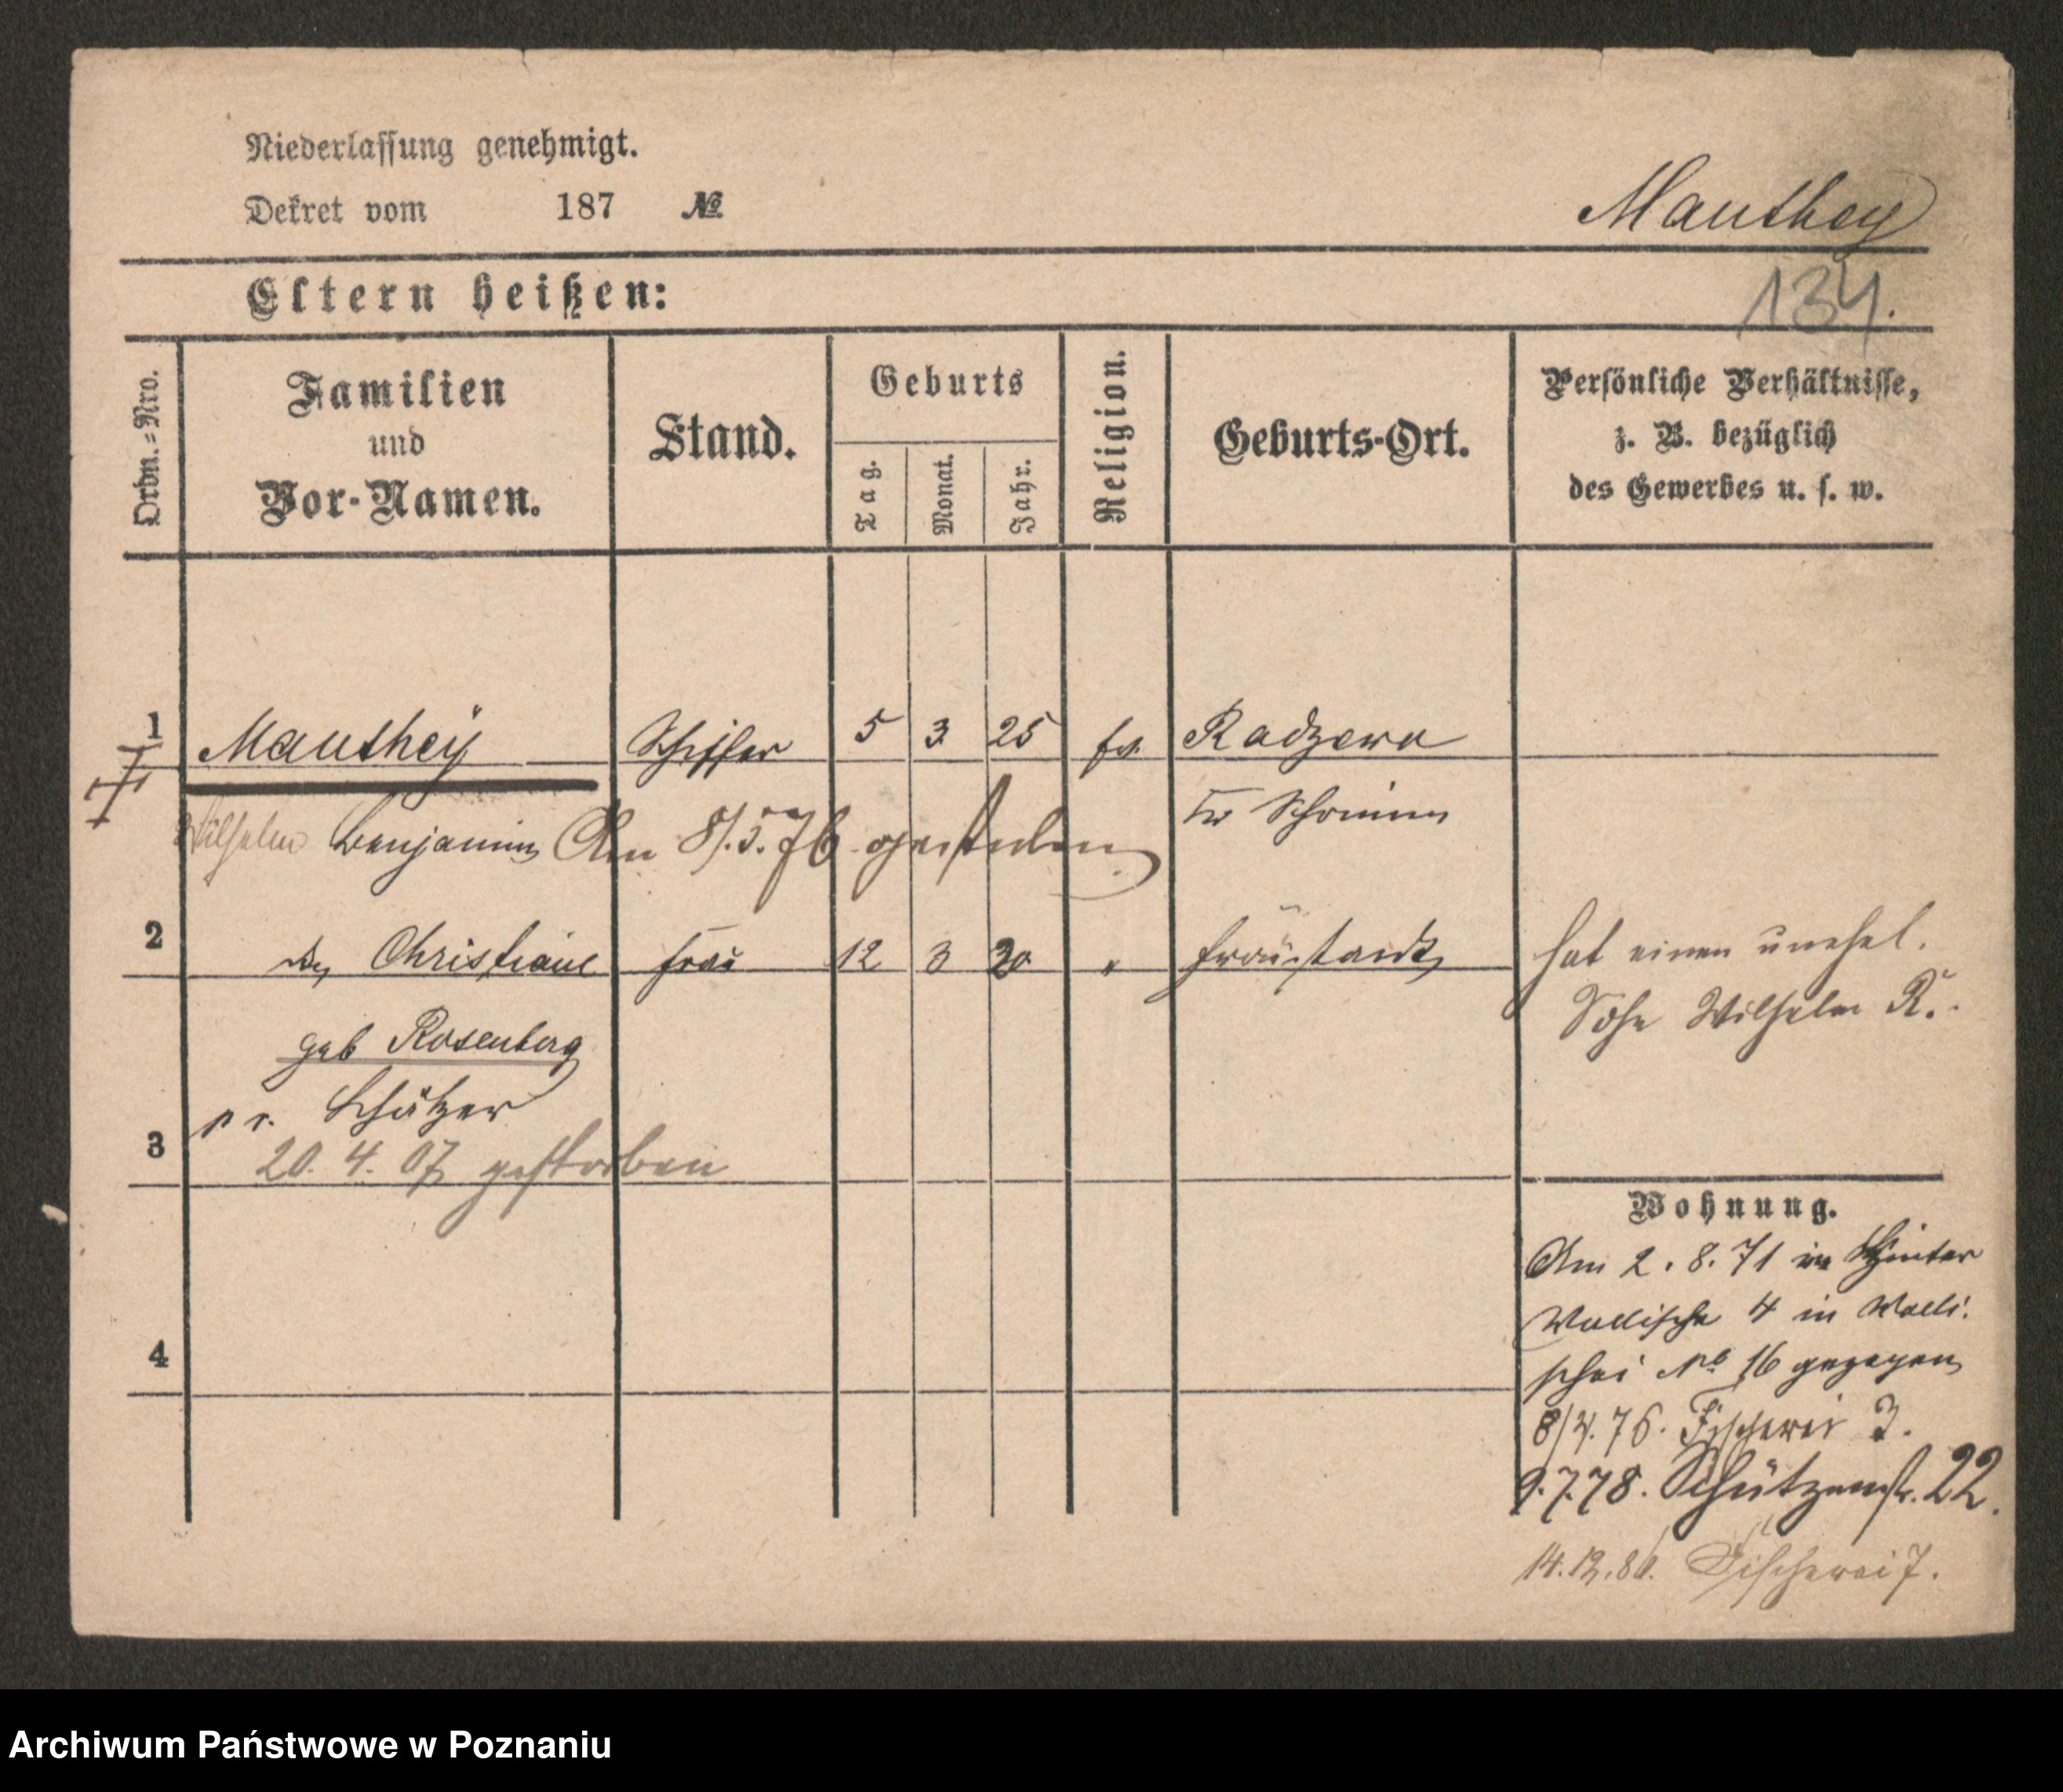 Niederlassung genehmigt.
Dekret vom 187 №
Mauthey
134.
Eltern heißen:
Ordn.=Nro.
Familien
und
Vor-Namen.
Stand.
Geburts
Tag.
Monat.
Jahr.
Religion.
Geburts-Ort.
Persönliche Verhältnisse,
z. B. bezüglich
des Gewerbes u. s. w.
1 Mautheÿ Schiffer 5 3 25 ev. Radzewo
Kr Schrimm
Wilhelm Benjamin Am 8/.5.76 gestorben
2 Christiane Frau 12 3 30 " Fraustadt hat einen unehel.
Sohn Wilhelm R.
geb Rosenberg
Schätzer
3 20. 4. 07 gestorben
Wohnung.
Am 2.8.71 in Hinter
Wallische 4 in Walli.
schei No 16 gezogen
8/4.76. Fischerei 3.
9.7.78. Schützenstr. 22.
14.12.80. Fischerei 7.
4
Archiwum Państwowe w Poznaniu